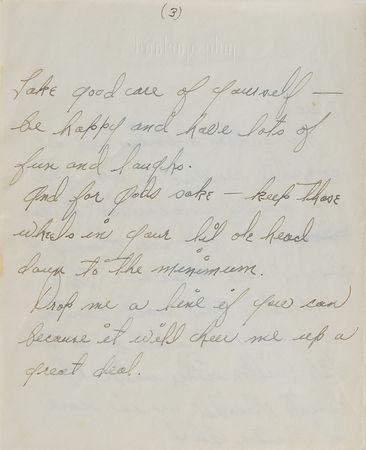 (3)
judy garland
Take good care of yourself —
be happy and have lots of
fun and laughs.
And for gods sake — keep those
wheels in your lil ole head
down to the minimum.
Drop me a line if you can
because it will cheer me up a
great deal.